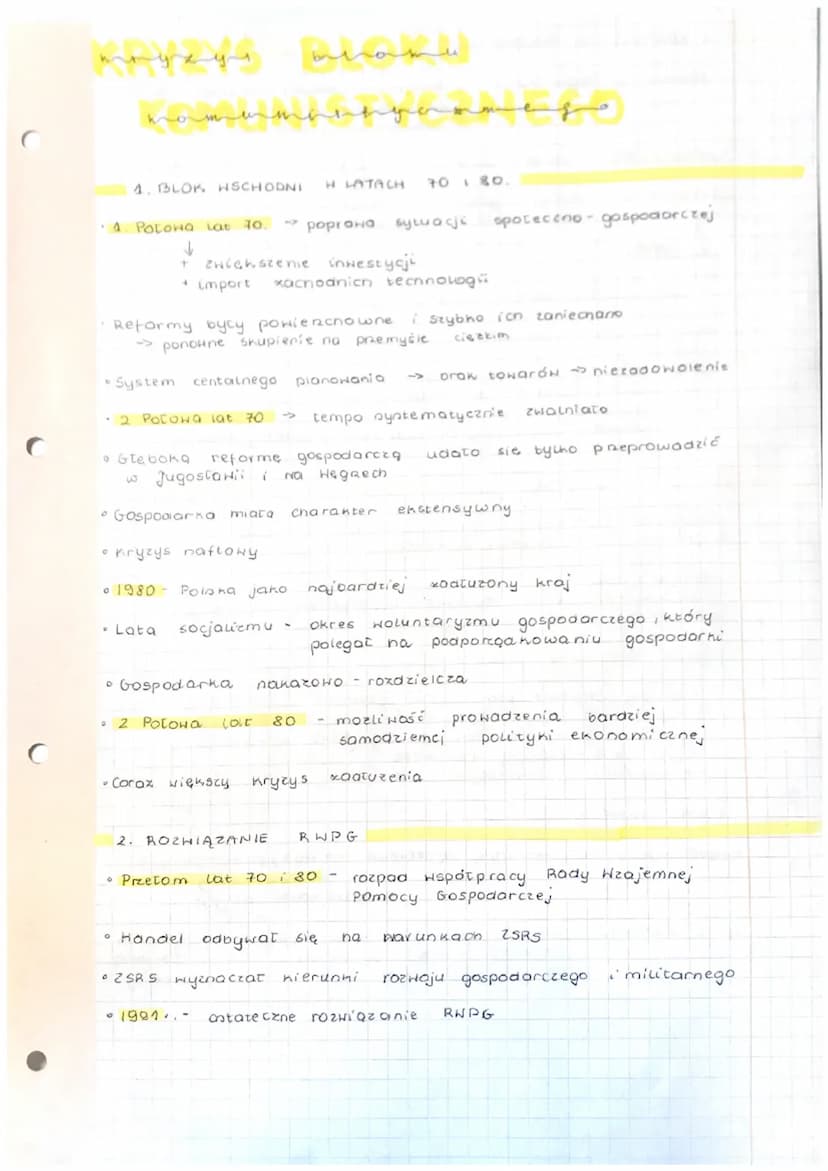 KRYZYS BLOKU
kryzys bloku
KOMUNISTYCZNEGO
komunistycznego
1. BLOK WSCHODNI W LATACH 70 i 80.
• 1. Połowa lat 70. -> poprawa sytuacji społeczno-gospodarczej
↓
+ zwiększenie inwestycji
+ import zachodnich technologii
• Reformy były powierzchowne i szybko ich zaniechano
-> ponowne skupienie na przemyśle ciężkim
• System centalnego planowania -> brak towarów -> niezadowolenie
• 2 Połowa lat 70 -> tempo systematycznie zwalniało
• Głęboką reformę gospodarczą udało się tylko przeprowadzić
w Jugosławii i na Węgrzech
• Gospodarka miała charakter ekstensywny
• Kryzys naftowy
• 1980 - Polska jako najbardziej zadłużony kraj
• Lata socjalizmu - okres woluntaryzmu gospodarczego, który
polegał na podporządkowaniu gospodarki
• Gospodarka nakazowo - rozdzielcza
• 2 Połowa lat 80 - możliwość prowadzenia bardziej
samodzielnej polityki ekonomicznej
• Coraz większy kryzys zadłużenia
2. ROZWIĄZANIE RWPG
• Przełom lat 70 i 80 - rozpad współpracy Rady Wzajemnej
Pomocy Gospodarczej
• Handel odbywał się na warunkach ZSRS
• ZSRS wyznaczał kierunki rozwoju gospodarczego i militarnego
• 1991r. - ostateczne rozwiązanie RWPG